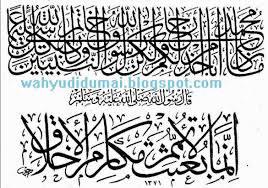 ما كان محمد أبا أحد من رجالكم ولكن رسول الله وخاتم النبيين
wahyudidumai.blogspot.com
قَالَ رَسُولُ اللهِ صَلَّى اللهُ عَلَيْهِ وَسَلَّمَ
إنما بعثت لأتمم مكارم الأخلاق
١٣٧١